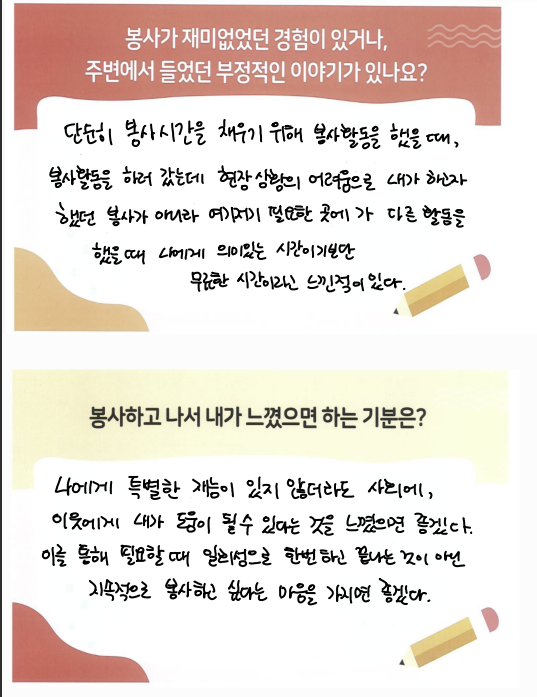 봉사가 재미없었던 경험이 있거나,
주변에서 들었던 부정적인 이야기가 있나요?
단순히 봉사시간을 채우기 위해 봉사활동을 했을 때,
봉사활동을 하러 갔는데 현장 상황의 어려움으로 내가 하고자
했던 봉사가 아니라 여기저기 필요한 곳에 가 다른 활동을
했을 때 나에게 의미있는 시간이기보단
무료한 시간이라고 느낀적이 있다.
봉사하고 나서 내가 느꼈으면 하는 기분은?
나에게 특별한 재능이 있지 않더라도 사회에,
이웃에게 내가 도움이 될 수 있다는 것을 느꼈으면 좋겠다.
이를 통해 필요할 때 일회성으로 한번 하고 끝나는 것이 아닌
지속적으로 봉사하고 싶다는 마음을 가지면 좋겠다.